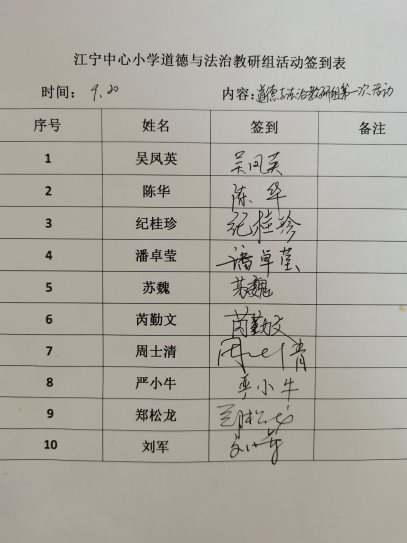 江宁中心小学道德与法治教研组活动签到表
时间： 9.20 内容：道德与法治教研组第一次活动
序号 姓名 签到 备注
1 吴凤英 吴凤英
2 陈华 陈华
3 纪桂珍 纪桂珍
4 潘卓莹 潘卓莹
5 苏魏 苏魏
6 芮勤文 芮勤文
7 周士清 周士清
8 严小牛 严小牛
9 郑松龙 郑松龙
10 刘军